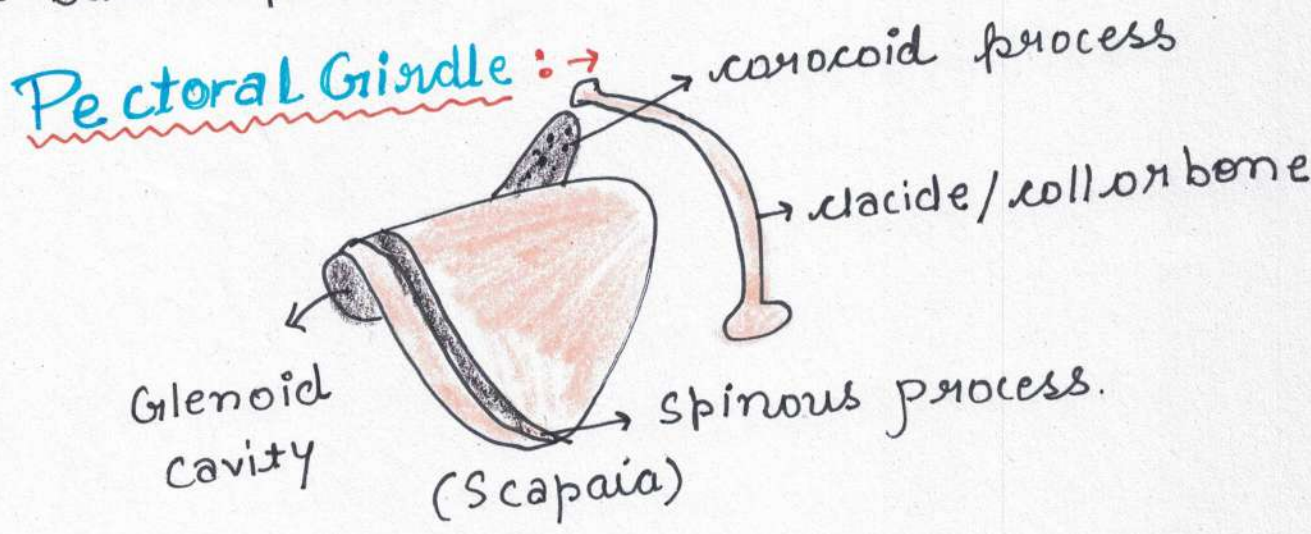 Pectoral Girdle :→
corocoid process
clacide/collor bone
Glenoid
cavity
spinous process.
(Scapaia)